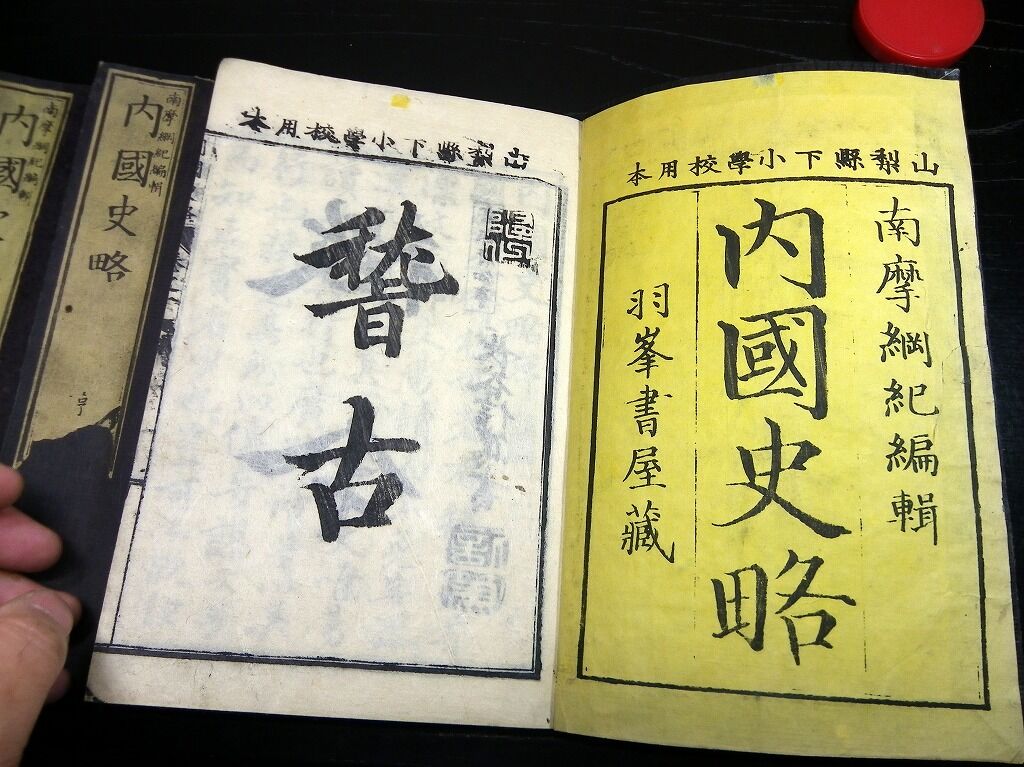 山梨縣下小學校用本
南摩綱紀編輯
内國史略
羽峯書屋藏
山梨縣下小學校用本
稽古
南摩綱紀編輯
内國史略
亨
南摩綱紀編輯
内國史